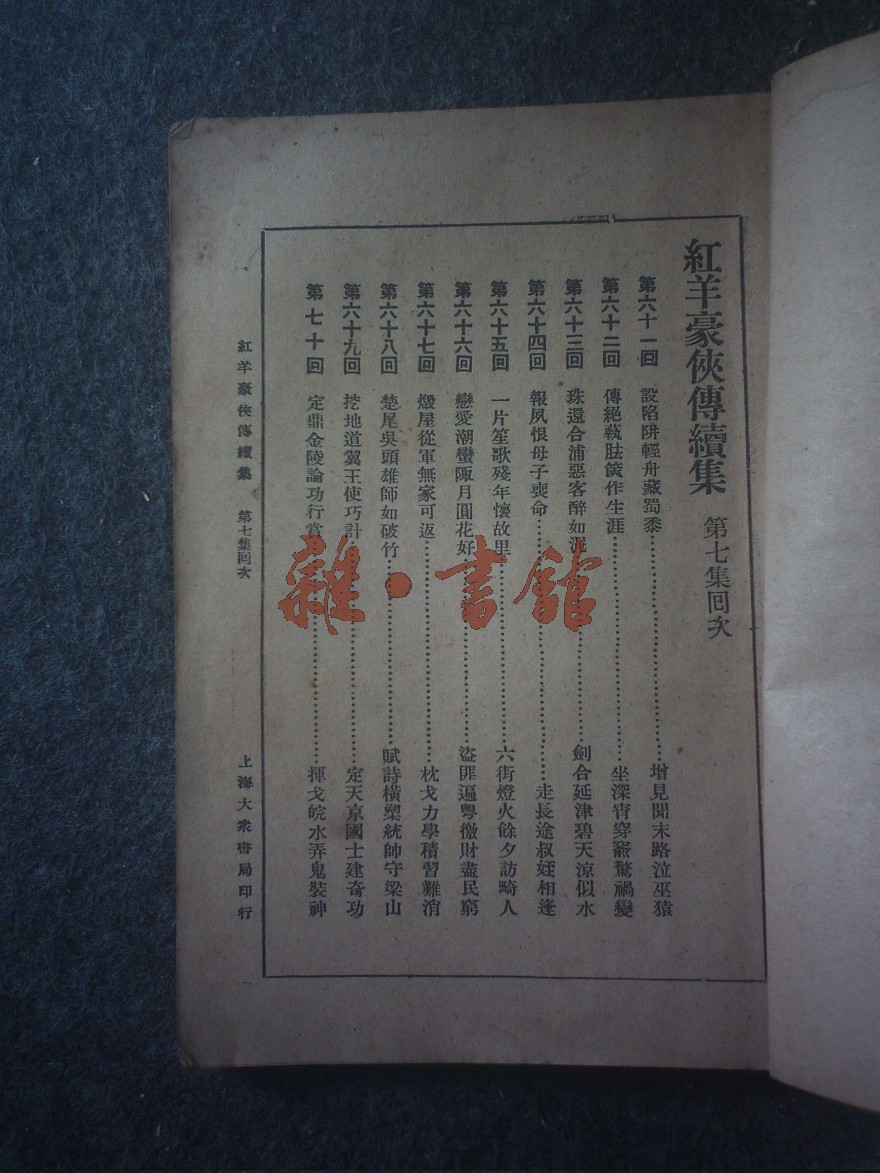 紅羊豪俠傳續集 第七集回次
第六十一回 設陷阱輕舟藏蜀黍 增見聞末路泣巫猿
第六十二回 傳絕執胠篋作生涯 坐深宵穿窬驚禍變
第六十三回 珠還合浦惡客醉如泥 劍合延津碧天涼似水
第六十四回 報夙恨母子喪命 走長途叔姪相逢
第六十五回 一片笙歌殘年懷故里 六街燈火餘夕訪畸人
第六十六回 戀愛潮蠻陬月圓花好 盜匪遍粵徼財盡民窮
第六十七回 燬屋從軍無家可返 枕戈力學積習難消
第六十八回 楚尾吳頭雄師如破竹 賦詩橫槊統帥守梁山
第六十九回 挖地道翼王使巧計 定天京國士建奇功
第七十回 定鼎金陵論功行賞 揮戈皖水弄鬼裝神
紅羊豪俠傳續集 第七集回次
上海大衆書局印行
雜·書館